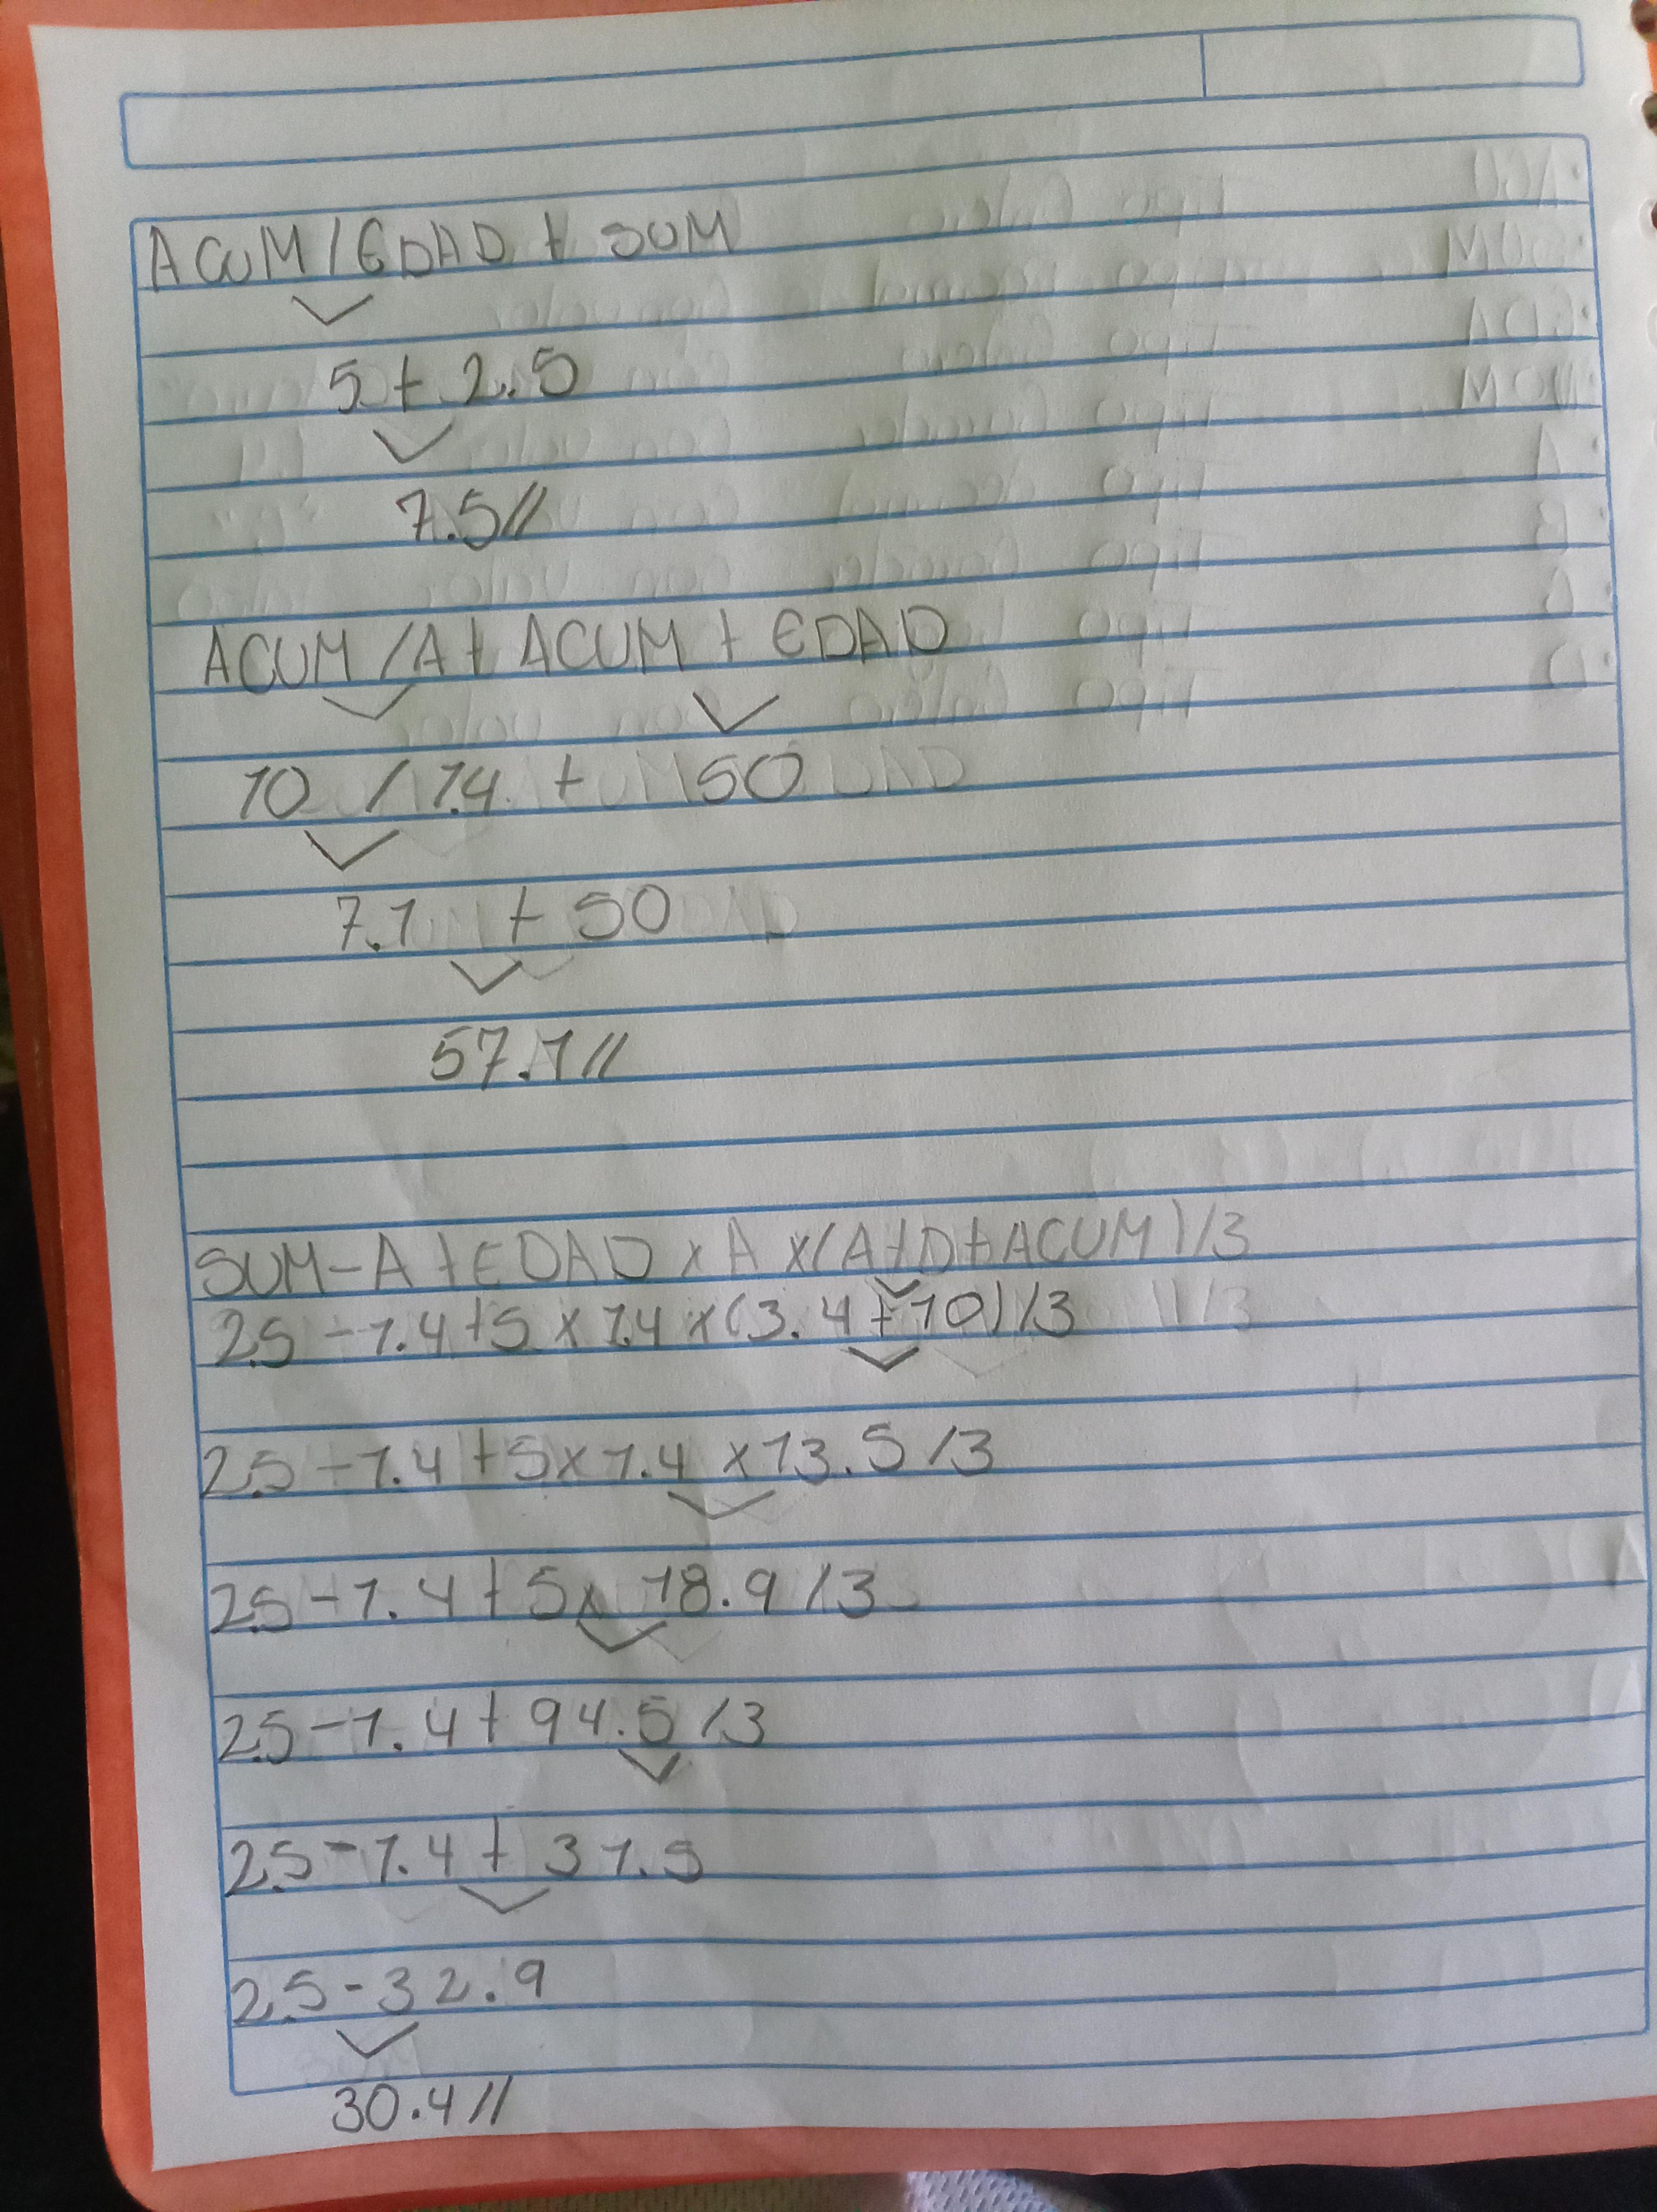 ACUM/EDAD + SUM
5 + 2.5
7.5//
ACUM/A + ACUM + EDAD
10 / 1.4 + 50
7.1 + 50
57.1//
SUM-A+EDAD x A x(A+D+ACUM)/3
2.5-1.4+5 x 1.4 x(3.4+10)/3
2.5-1.4+5x1.4x13.5/3
2.5-1.4+5x 18.9/3
2.5-1.4+94.5/3
2.5-1.4+31.5
2.5-32.9
30.4//